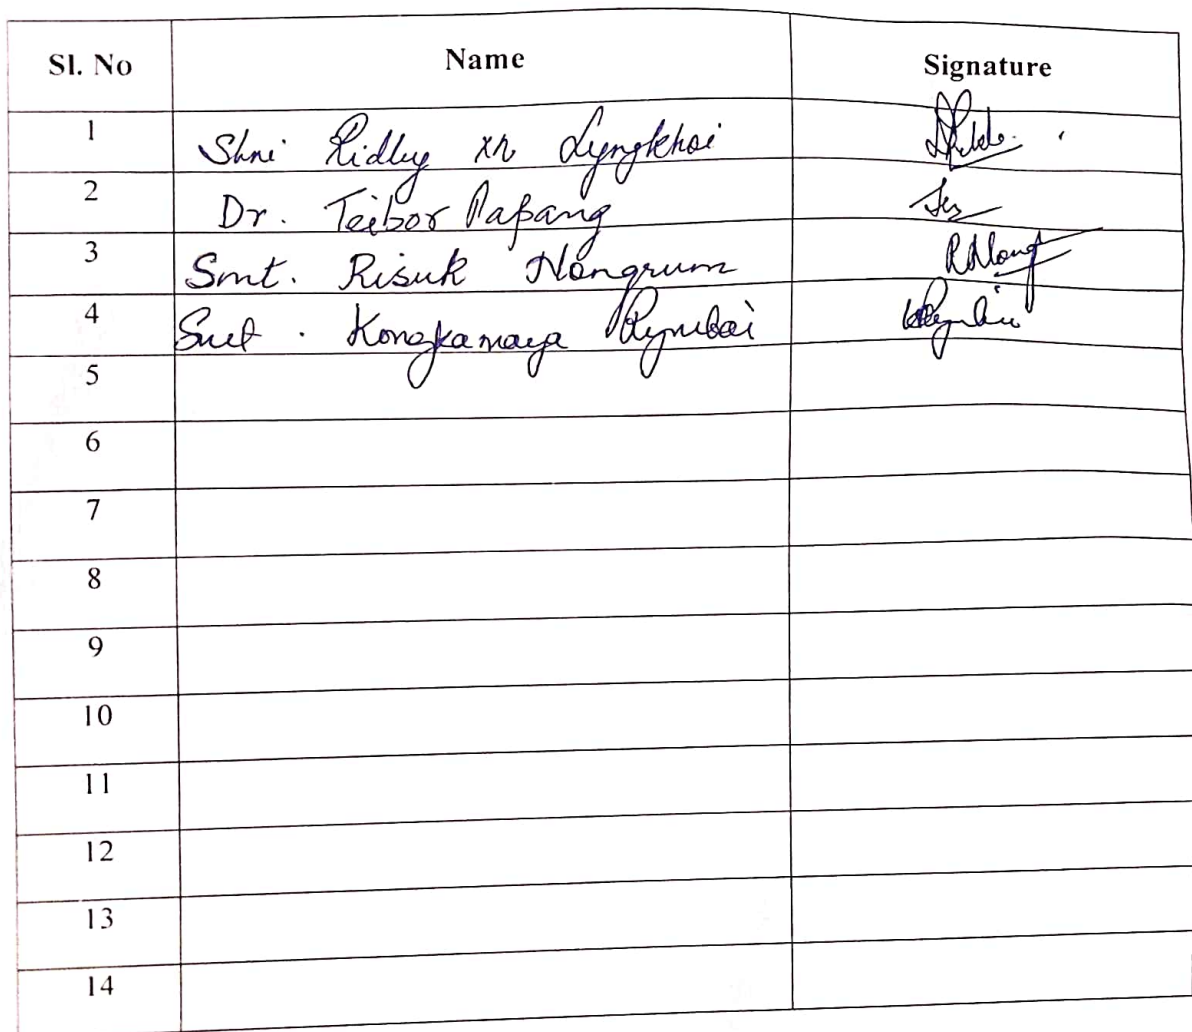 Sl. No Name Signature
1 Shni Ridley xn Lyngkhoi
2 Dr. Teibor Papang
3 Smt. Risuk Nongrum
4 Smt. Kongkamaya Rymbai
5
6
7
8
9
10
11
12
13
14